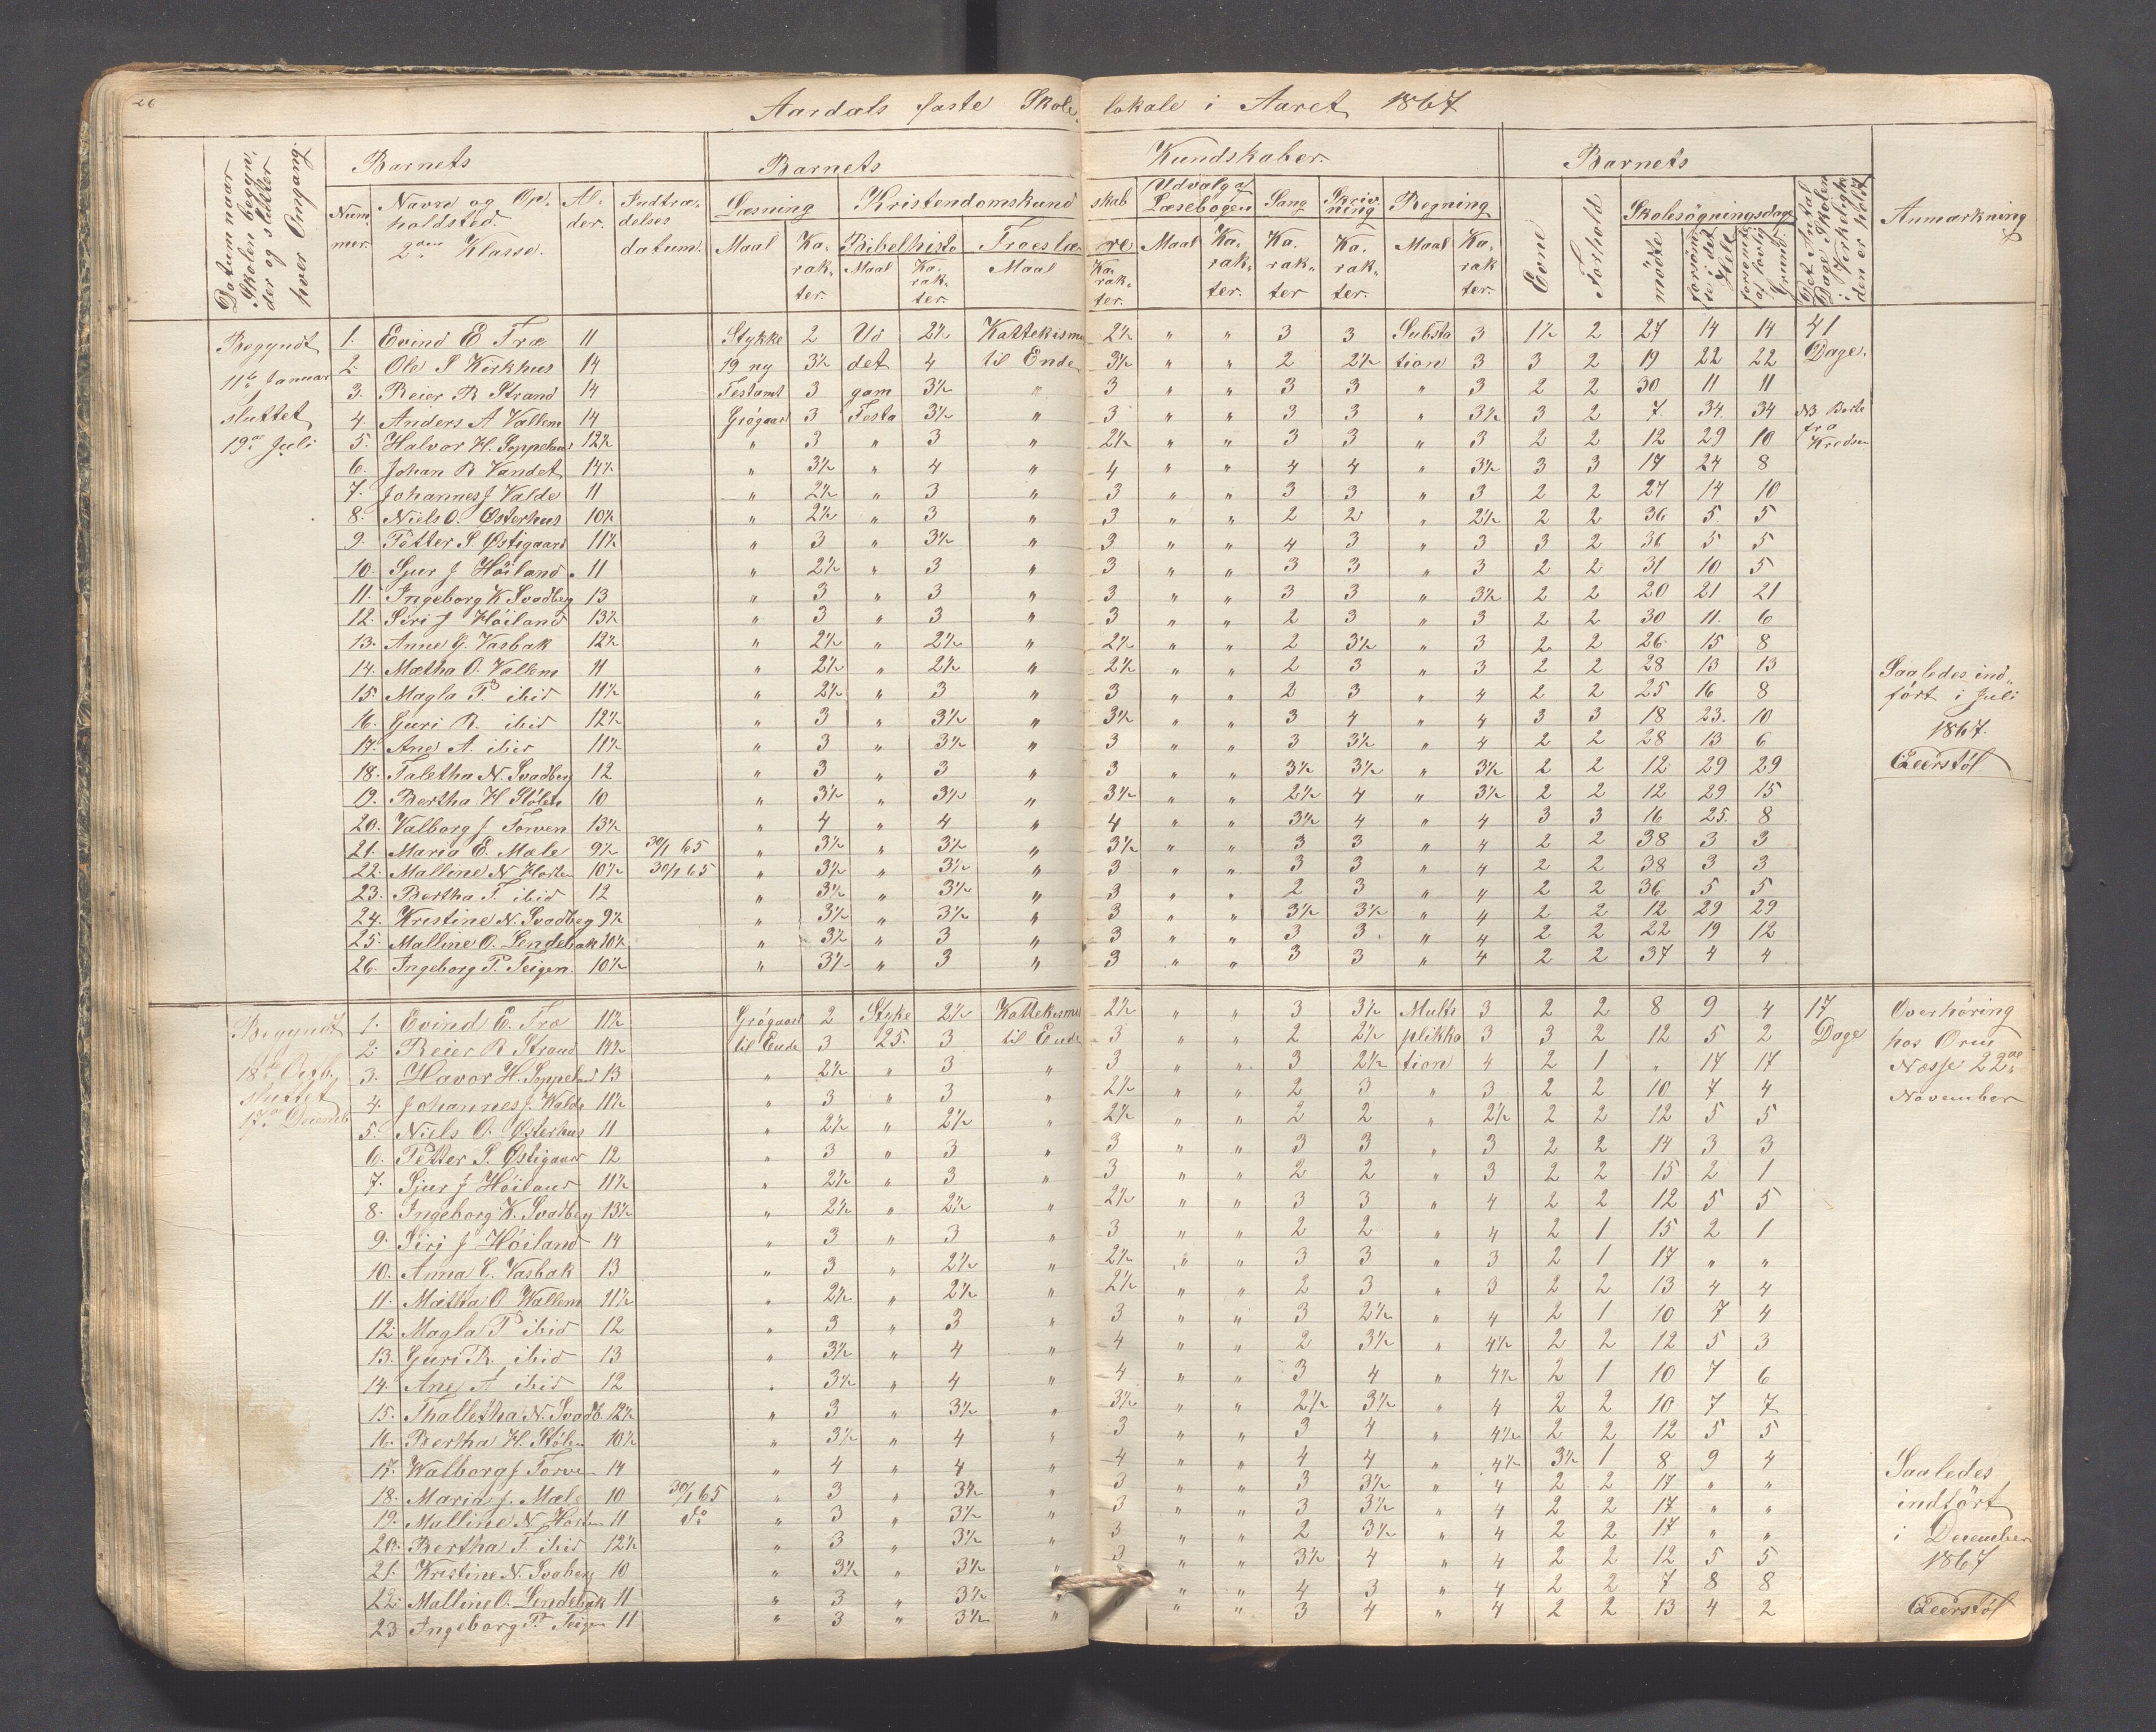 26
Aardals faste Skole lokale i Aaret 1867
Datum naar Skolen begyn- der og slutter hver Omgang.
Barnets
Barnets
Kundskaber.
Barnets
Anmærkning
Num- mer.
Navn og Op- holdsted. 2den Klasse.
Al- der.
Indtræ- delses datum.
Læsning
Kristendomskund skab
Udvalg af Læsebogen
Sang
Skriv- ning
Regning
Evne
Forhold
Skolesøgningsdage
Maal Ka- rak- ter.
Bibelhisto Maal Ka- rak- ter.
Troeslæ re Maal Ka- rak- ter.
Maal Ka- rak- ter.
Ka- rak- ter
Ka- rak- ter.
Maal Ka- rak ter.
mødte
forsømte i det Hele
forsømte af lovlig Grund.
Det Antal Dage Skolen i Virkeligheden er holdt
Begyndt 11te Januar sluttet 19de Juli
1. Evind E Træ 11 Stykke 2 Ud 2½ Kattekisme 2½ " " 3 3 Substa 3 1½ 2 27 14 14 41
2. Ole S Kirkhus 14 19 ny 3½ det 4 til Ende 3½ " " 2 2½ tion 3 3 2 19 22 22 Dage.
3. Reier R Strand 14 Testamt 3 gam 3½ " 3 " " 3 3 " 3 2 2 30 11 11
4. Anders A Vallem 14 Grøgaard 3 Testa 3½ " 3 " " 3 3 " 3½ 3 2 7 34 34 NB Borte fra Kredsen
5. Halvor H. Soppeland 12½ " 3 " 3 " 2½ " " 3 3 " 3 2 2 12 29 10
6. Johan R Vandet 14½ " 3½ " 4 " 4 " " 4 4 " 3½ 3 3 17 24 8
7. Johannes J Valde 11 " 2½ " 3 " 3 " " 3 3 " 3 2 2 27 14 10
8. Niels O. Østerhus 10½ " 2½ " 3 " 3 " " 2 2 " 2½ 2 2 36 5 5
9. Petter S. Østigaard 11½ " 3 " 3½ " 3 " " 4 3 " 3 3 2 36 5 5
10. Sjur J Höiland 11 " 2½ " 3 " 3 " " 3 3 " 3 2 2 31 10 5
11. Ingeborg K Svadberg 13 " 3 " 3 " 3 " " 3 3 " 3½ 2 2 20 21 21
12. Siri J Höiland 13½ " 3 " 3 " 3 " " 2 3 " 3 2 2 30 11. 6
13. Anne G. Vasbak 12½ " 2½ " 2½ " 2½ " " 2 3½ " 3 2 2 26 15 8
14. Mætha O. Vallem 11 " 2½ " 2½ " 2½ " " 2 3 " 3 2 2 28 13 13
15. Magla P ibid 11½ " 2½ " 3 " 3 " " 2 3 " 4 2 2 25 16 8
16. Guri R. ibid 12½ " 3 " 3½ " 3½ " " 3 4 " 4 3 3 18 23. 10
17. Ane A. ibid 11½ " 3 " 3½ " 3 " " 3 3½ " 4 2 2 28 13 6
18. Taletha N. Svadberg 12 " 3 " 3 " 3 " " 3½ 3½ " 3½ 2 2 12 29 29
19. Bertha H Stølen 10 " 3½ " 3½ " 3½ " " 2½ 4 " 3½ 2 2 12 29 15
20. Valborg J Torven 13½ " 4 " 4 " 4 " " 3½ 4 " 4 3 3 16 25. 8
21. Maria E. Mæle 9½ 30/1 65 " 3½ " 3½ " 3½ " " 3 3 " 4 2 2 38 3 3
22. Malline N Horten 10½ 30/1 65 " 3½ " 3½ " 3 " " 3 3 " 4 2 2 38 3 3
23. Bertha T. ibid 12 " 3½ " 3½ " 3 " " 2 3 " 4 2 2 36 5 5
24. Kristine N. Svadberg 9½ " 3½ " 3½ " 3 " " 3½ 3½ " 4 2 2 12 29 29
25. Malline O. Lendebak 10½ " 3½ " 3 " 3 " " 3 3 " 4 2 2 22 19 12
26. Ingeborg P. Teigen. 10½ " 3½ " 3 " 3 " " 3 3 " 4 2 2 37 4 4
Saaledes ind- ført i Juli 1867.
Begyndt 18de Octb. sluttet 17de Decemb
1. Evind E. Træ 11½ Grøgaard 2 Styke 2½ Kattekisme 2½ " " 3 3½ Multi 3 2 2 8 9 4 17
2. Reier R Strand 14½ til Ende 3 25. 3 til Ende 3 " " 2 2½ plikka 3 3 2 12 5 2 Dage
3. Havor H. Soppeland 13 " 2½ " 3 " 3 " " 3 2½ tion 4 2 1 " 17 17
4. Johannes J. Walde 11½ " 3 " 3 " 2½ " " 2 3 " 3 2 2 10 7 4
5. Niels O. Østerhus 11 " 2½ " 2½ " 2½ " " 2 2 " 2½ 2 2 12 5 5
6. Petter S. Østigaard 12 " 3 " 3 " 3 " " 3 3 " 3 2 2 14 3 3
7. Sjur J Höiland 11½ " 2½ " 3 " 3 " " 2 2 " 3 2 2 15 2 1
8. Ingeborg K. Svadberg 13½ " 2½ " 2½ " 2½ " " 3 3 " 4 2 2 12 5 5
9. Siri J Höiland 14 " 3 " 3 " 3 " " 2 2 " 4 2 1 15 2 1
10. Anna E. Vasbak 13 " 3 " 2½ " 2½ " " 3 3 " 3 2 1 17 " "
11. Mætha O Wallem 11½ " 2½ " 2½ " 2½ " " 2 3 " 3 2 2 13 4 4
12. Magla P ibid 12 " 3 " 3 " 3 " " 3 2½ " 4 2 1 10 7 4
13. Guri R. ibid 13 " 3½ " 4 " 4 " " 2 3½ " 4½ 2 2 12 5 3
14. Ane A ibid 12 " 3½ " 4 " 4 " " 3 4 " 4½ 2 1 10 7 6
15. Thalletha N. Svadb. 12½ " 3 " 3½ " 3½ " " 2½ 3½ " 4 2 2 10 7 7
16. Bertha H. Stølen 10½ " 3½ " 4 " 3 " " 3 4 " 4½ 2 2 12 5 5
17. Walborg J Torven 14 " 4 " 4 " 4 " " 4 4 " 4½ 3½ 1 8 9 4
18. Maria J. Mæle 10 30/1 65 " 3 " 3½ " 3 " " 3 3½ " 4 2 2 17 " "
19. Malline N Horten 11 do " 3 " 3½ " 3 " " 3 3½ " 4 2 2 17 " "
20. Bertha T. ibid 12½ " 3 " 3½ " 3 " " 2 3½ " 4 2 2 17 " "
21. Kristine N. Svaberg 10 " 3½ " 3½ " 3 " " 3½ 4 " 4 2 2 12 5 5
22. Malline O. Lendebak 11 " 3 " 3½ " " " 4 3 " 4 2 2 7 8 8
23 Ingeborg P. Teigen 11 " 3 " 3½ " " " 3 4 " 4 2 2 13 4 2
Overhøring hos Orm Næsse 22de November
Saaledes indført i December 1867